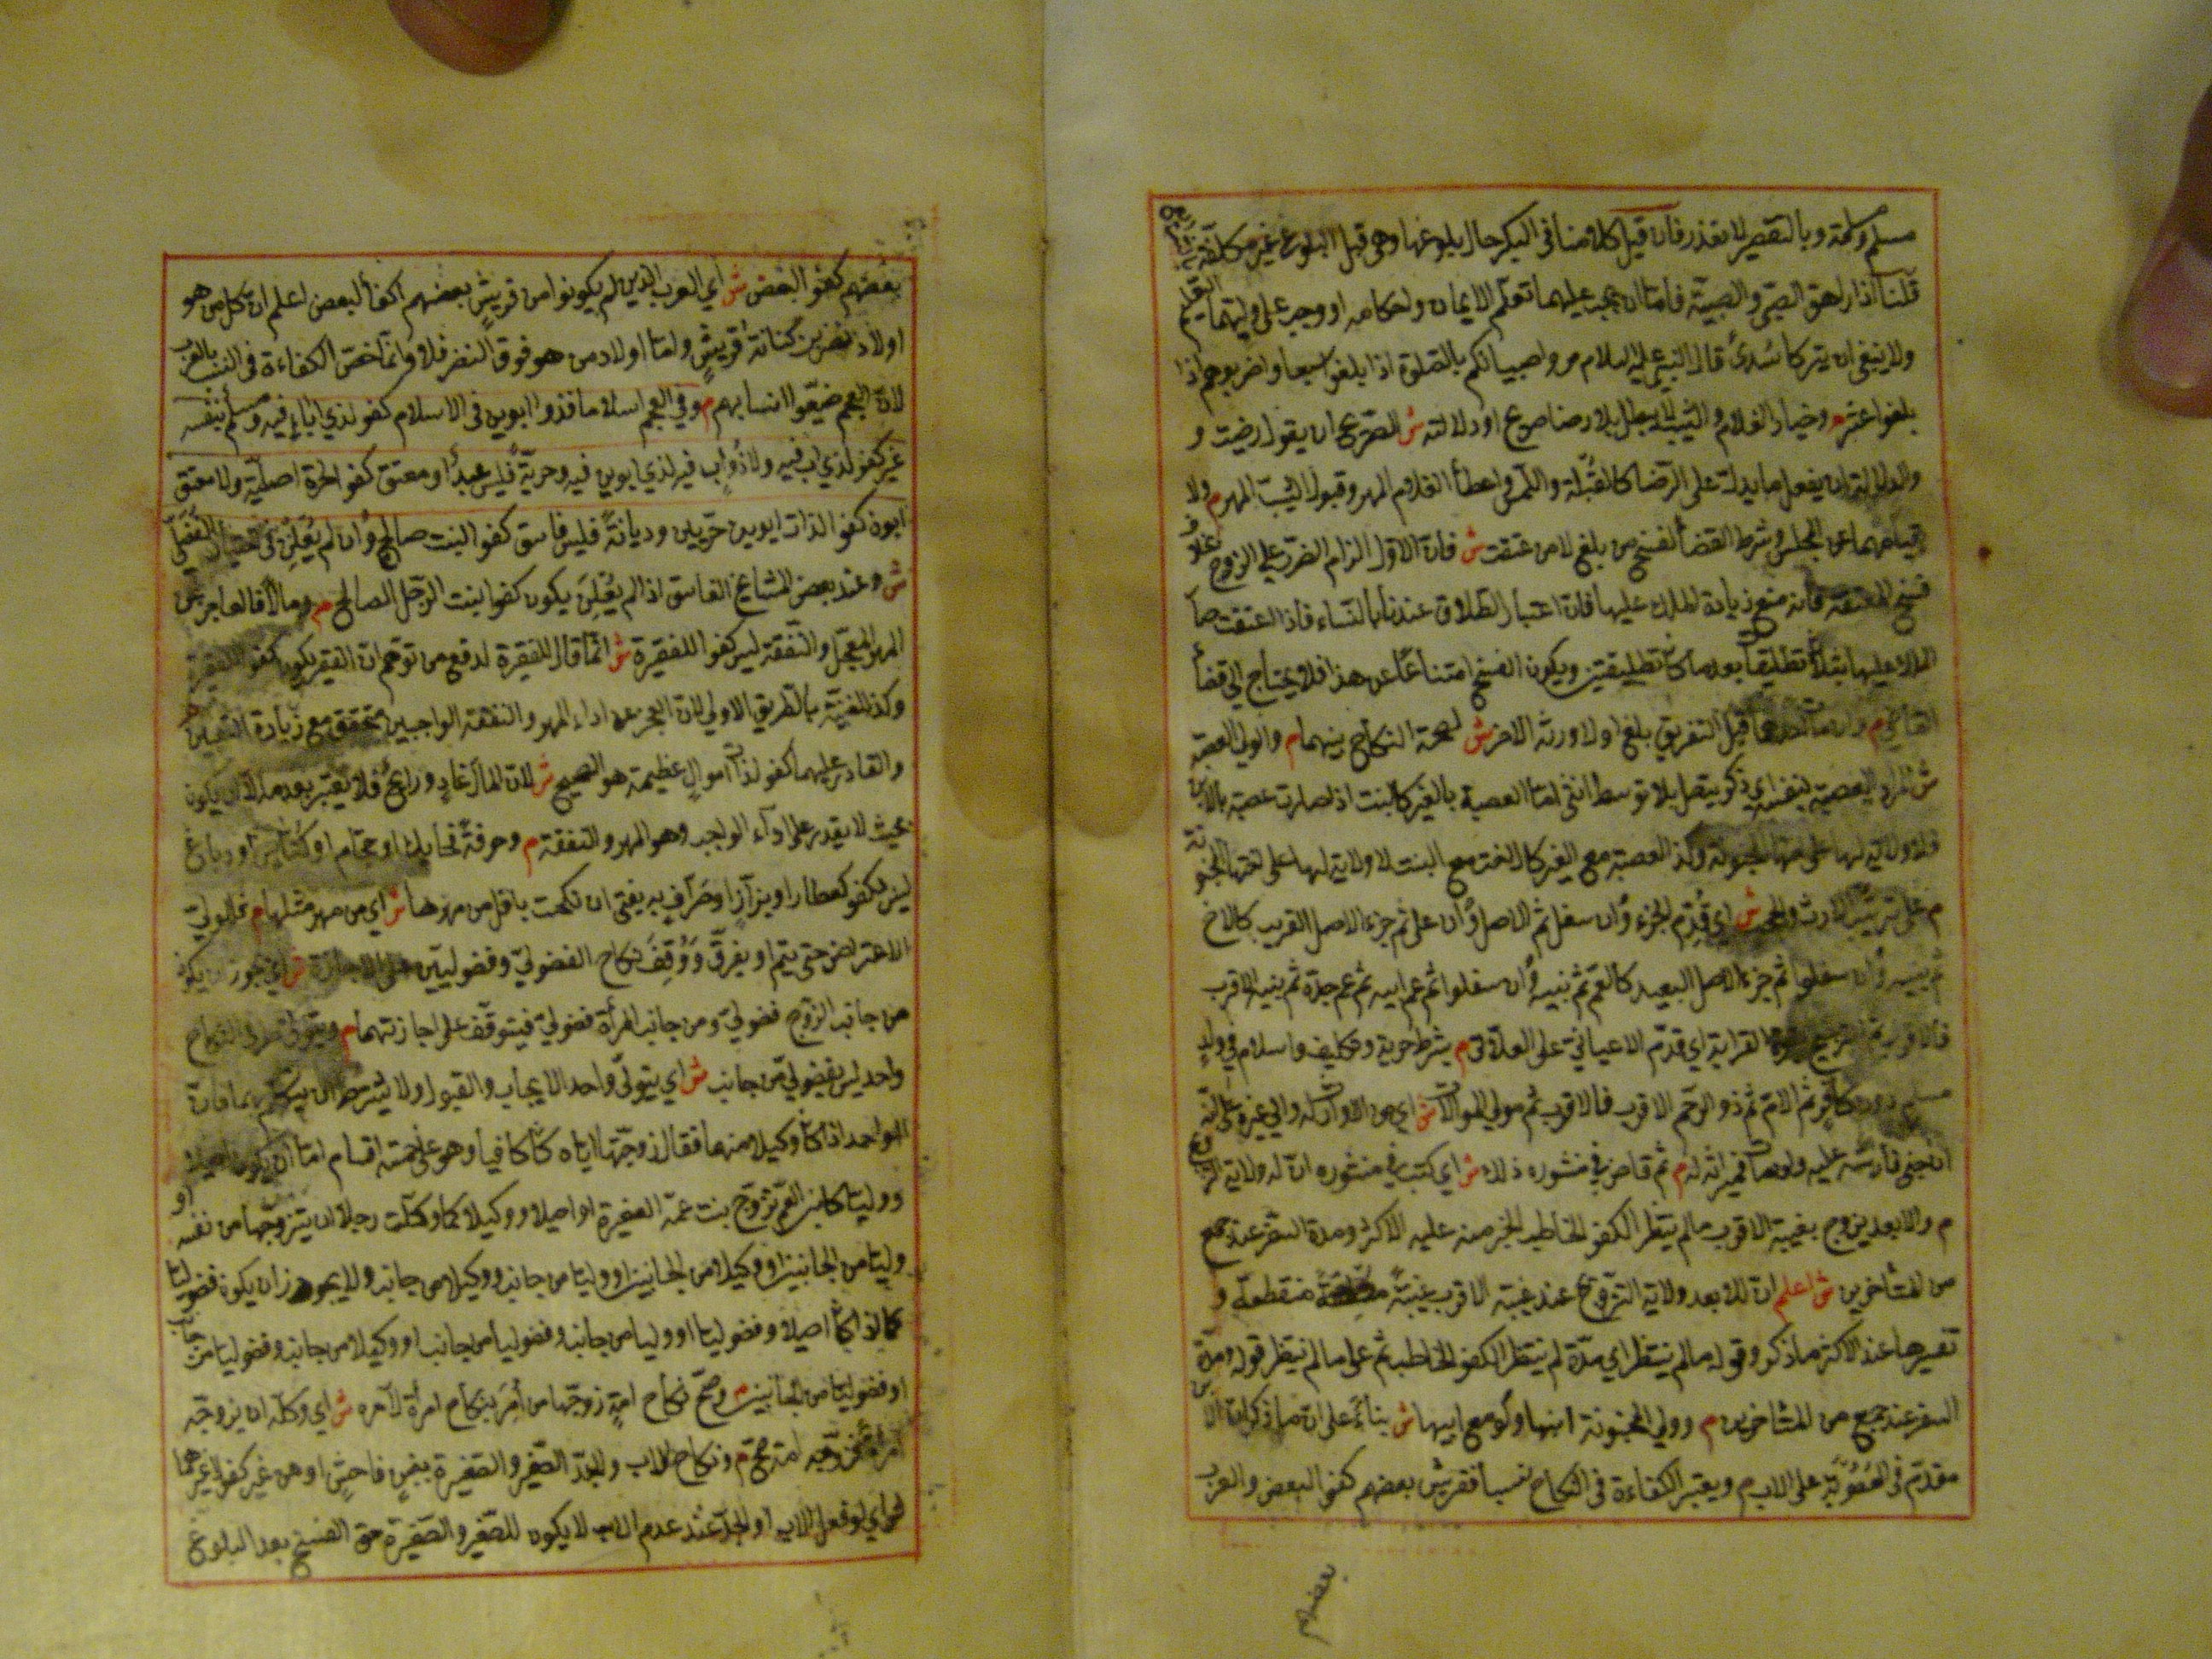 مسلم ومسلمة وبالتقصير لا تعذر فان قيل كلامنا فى البكر حال بلوغها وهى قبل البلوغ غير مكلفة بالشرايع
قلنا اذا راهق الصبي والصبيّة فامّا ان يجب عليهما تعلّم الايمان واحكامه او وجب على وليّهما التعليم
ولا ينبغى ان يتركا سُدىً قال النبي عليه السلام مروا صبيانكم بالصلوة اذا بلغوا سبعا واضربوهم اذا
بلغوا عشرا م وخيار الغلام والثيب لا يبطل بلا رضا صريح او دلالته ش الصريح ان يقول رضيت و
والدلالة ان يفعل ما يدلّ على الرّضا كالقُبلة واللّمس واعطأ الغلام المهر وقبول الثيّب المهر م ولا
قيامهما عن المجلس وشرط القضأ لفسخ من بلغ لا من عتقت ش فان الاوّل الزام الضرر على الزوج بخلاف
فسخ المعتقة فانه منع زيادة الملك عليها فان اعتبار الطّلاق عندنا بالنّساء فاذا اعتقت صار
الملك عليها بثلاث تطليقات بعد ما كان تطليقتين ويكون الفسخ امتناعًا عن هذا فلا يحتاج الى قضأ
القاضى م وان مات احدهما قبل التفريق بلغ او لا ورثه الاخر ش لصحة النكاح بينهما م والولي العصبة
ش المراد العصبة بنفسه اى ذكر يتصل بلا توسط انثى امّا العصبة بالغير كالبنت اذا صارت عصبة بالابن
فلا ولاية لها على امّها المجنونة وكذا العصبة مع الغير كالاخت مع البنت لا ولاية لها على اختها المجنونة
م على ترتيب الارث والحجب ش اى قُدّم الجزء وان سفل ثم الاصل وان على ثم جزء الاصل القريب كالاخ
ثم بنيه وان سفلوا ثم جزء الاصل البعيد كالعمّ ثم بنيه وان سفلوا ثم عم ابيه ثم عم جدّه ثم بنيه الاقرب
فالاقرب ثم الترجيح بقوة القرابة اى قدّم الاعيانيّ على العلاّتي م بشرط حرية وتكليف واسلام في ولد
مسلم دون كافر ثم الامّ ثم ذو الرّحم الاقرب فالاقرب ثم مولي الموالاة ش اى من لا وارث له والي غيره على انّه
ان جنى فارشه عليه وان مات فميراثه له م ثم قاض في منشوره ذلك ش اى كتب في منشوره انّ له ولاية التزويج
م والابعد يزوج بغيبة الاقرب ما لم ينتظر الكفو الخاطب الخبر منه عليه الاكثر ومدة السّفر عند جمع
من المتأخرين ش اعلم انّ للابعد ولاية التّزوّج عند غيبة الاقرب غيبةً منقطعة و
تفسيرها عند الاكثر ما ذكر وقوله ما لم ينتظر اى مدّة لم ينتظر الكفو الخاطب ثم على ما لم ينتظر قوله ومدّة
السفر عند جمع من المتأخرين م وولي المجنونة ابنها ولو مع ابيها ش بناءً على ان ما ذكر انّ الابن
مقدّم فى العُصُوبَة على الاب م ويعتبر الكفاءة فى النكاح نسبا فقريش بعضهم كفو لبعض والعرب
بعضهم
بعضهم كفو البعض ش اي العرب الذين لم يكونوا من قريشٍ بعضهم اكفأ لبعض اعلم ان كل من هو
اولاد نضر بن كنانة قريشٍ وامّا اولاد من هو فوق النضر فلا وانّما خصّ الكفاءة فى النسب بالعرب
لانّ العجم ضيّعوا انسابهم م وفي العجم اسلاما فذو ابوين فى الاسلام كفو لذي اباءٍ فيه ومسلم بنفسه
غير كفو لذي اب فيه ولا ذو ابٍ فيه لذي ابوين فيه وحريّةً فليس عبدٌ او معتق كفو الحرّة اصليّة ولا معتق
ابوه كفو الذات ابوين حرّيين وديانةً فليس فاسق كفو البنت صالح وان لم يُعْلِن فى اختيار الفضلي
ش وعند بعض المشايخ الفاسق اذا لم يُعْلِنَ يكون كفوا لبنت الرّجل الصالح م ومالاً فالعاجز عن
المهر المعجّل والنّفقة ليس كفوا للفقيرة ش انّما قال للفقيرة لدفع من توهّم انّ الفقير يكون كفوا للفقيرة
وكذا للغنيّة بالطّريق الاولي لانّ العجز عن اداء المهر والنفقة الواجبين متحقق مع زيادة التعيير
والقادر عليهما كفو لذات اموالٍ عظيمة هو الصحيح ش لانّ المال غادٍ ورايحٌ فلا يعتبر بعد ما لان يكون
بحيث لا يقدر على ادآء الواجب وهو المهر والنفقة م وحرفةً فحايك او حجّام او كنّاس او دبّاغ
ليس بكفو كعطار او بزّاز او صَرّافٍ به يفتى ان نكحت باقل من مهرها ش اى من مهر مثلها م فللوليّ
الاعتراض حتى يتم او يفرقّ وَوُقِفَ نكاح الفضوليّ وفضوليّين على الاجازة ش اى يجوز ان يكون
من جانب الزّوج فضوليّ ومن جانب المرأة فضوليّ فيتوقّف على اجازتهما م ويتولّى طرفى النكاح
واحد ليس بفضوليّ من جانب ش اي يتولّى واحد الايجاب والقبول ولا يشترط ان يتكلّم بهما فان
الواحد اذا كان وكيلا منهما فقال زوجّتها ايّاه كان كافيا وهو على خمسة اقسام امّا ان يكون اصيلا
ووليّا كابن العم تزوّج بنت عمّه الصغيرة او اصيلا ووكيلا كما وكلّت رجلا ان يتزوّجها من نفسه او
وليّا من الجانبين او وكيلا من الجانبين او وليّا من جانب ووكيلا من جانب ولا يجوز ان يكون فضوليّا
كما اذا كان اصيلا وفضوليّا او وليا من جانب وفضوليا من جانب او وكيلا من جانب وفضوليا من جانب
او فضوليّا من الجانبين م وصحّ نكاح امةٍ زوّجها من اُمِرَ بنكاح امرأة لآمره ش اى وكلّه ان يزوجّه
امرأة فزوّجه امة صحّ م ونكاح الاب والجدّ الصّغير والصّغيرة بغبنٍ فاحشٍ او من غير كفو لا غيرهما
ش اي لو فعل الاب او الجدّ عند عدم الاب لا يكون للصّغير والصّغيرة حق الفسخ بعد البلوغ